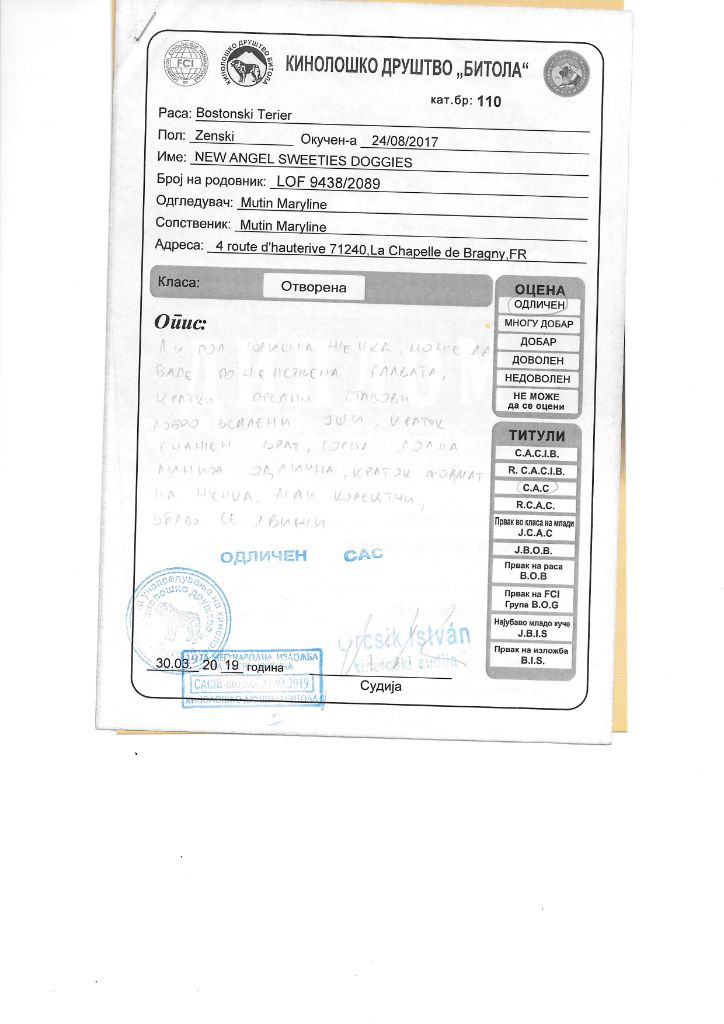 FCI
КИНОЛОШКО ДРУШТВО БИТОЛА
КИНОЛОШКО ДРУШТВО „БИТОЛА“
кат.бр: 110
Раса: Bostonski Terier
Пол: Zenski Окучен-а 24/08/2017
Име: NEW ANGEL SWEETIES DOGGIES
Број на родовник: LOF 9438/2089
Одгледувач: Mutin Maryline
Сопственик: Mutin Maryline
Адреса: 4 route d'hauterive 71240,La Chapelle de Bragny,FR
Класа: Отворена
Опис:
ГОДИШНА ЖЕНКА, МОЖЕ ДА
БИДЕ ПОЖЕНСТВЕНА ГЛАВАТА,
КРАТКИ ПРЕДНИ СТАВОВИ
ДОБРО УШИ, КРАТОК
СНАЖЕН ВРАТ, ГОРНА ДОЛНА
ЛИНИЈА ОДЛИЧНА, КРАТОК ФОРМАТ
НА ЖЕНКА, КОРЕКТНИ,
СЕ ДВИЖИ
ОДЛИЧЕН CAC
ОЦЕНА
ОДЛИЧЕН
МНОГУ ДОБАР
ДОБАР
ДОВОЛЕН
НЕДОВОЛЕН
НЕ МОЖЕ
да се оцени
ТИТУЛИ
C.A.C.I.B.
R. C.A.C.I.B.
C.A.C
R.C.A.C.
Првак во класа на млади
J.C.A.C
J.B.O.B.
Првак на раса
B.O.B
Првак на FCI
Група B.O.G
Најубаво младо куче
J.B.I.S
Првак на изложба
B.I.S.
унапредување на
кинолошко друштво
Orcsik István
kinološki sudija
30.03. 20 19 година
МЕЃУНАРОДНА ИЗЛОЖБА
CACIB-БИТОЛА 2019
КИНОЛОШКО ДРУШТВО БИТОЛА
Судија